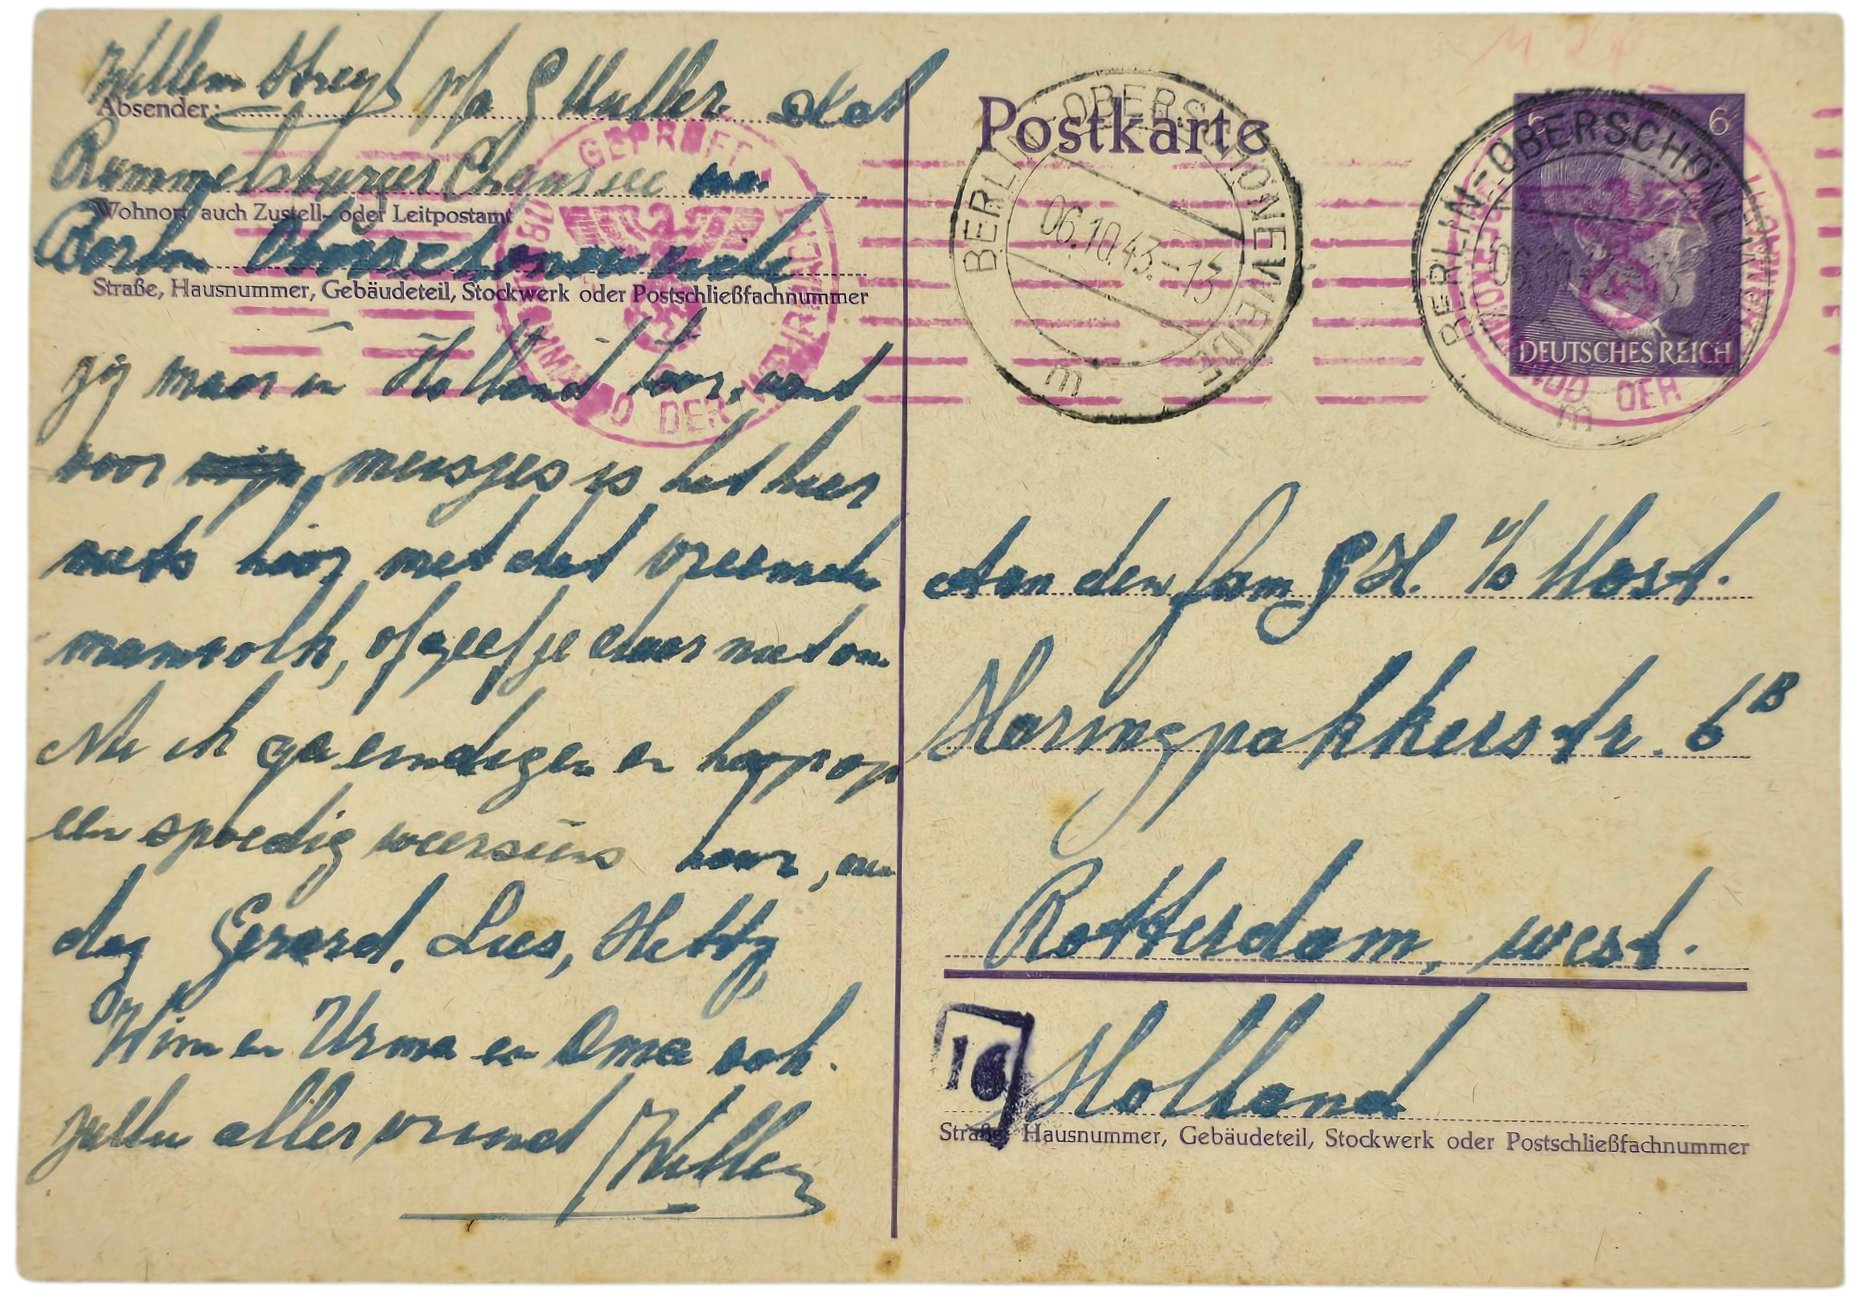 Willem Streef p/a G Muller
Absender:
Rummelsburger Chaussee
Wohnort, auch Zustell- oder Leitpostamt
Berlin Oberschöneweide
Straße, Hausnummer, Gebäudeteil, Stockwerk oder Postschließfachnummer
GEPRÜFT
OBERKOMMANDO DER WEHRMACHT
jij maar in Holland hoor, want
voor meisjes is het hier
niets hoor met dat vreemde
mansvolk, of geef je daar niet om.
Nu ik ga eindigen en hoop op
een spoedig weerziens hoor, nu
dag Gerard, Lies, Hetty,
Wim en Urma en Oma ook.
jullie aller vriend Willem
Postkarte
BERLIN-OBERSCHÖNEWEIDE
06.10.43.-13
m
6 6
DEUTSCHES REICH
BERLIN-OBERSCHÖNEWEIDE
m
Aan den fam G H. v/d Horst.
Haringpakkerstr. 6 B
Rotterdam, west.
16
Holland
Straße, Hausnummer, Gebäudeteil, Stockwerk oder Postschließfachnummer